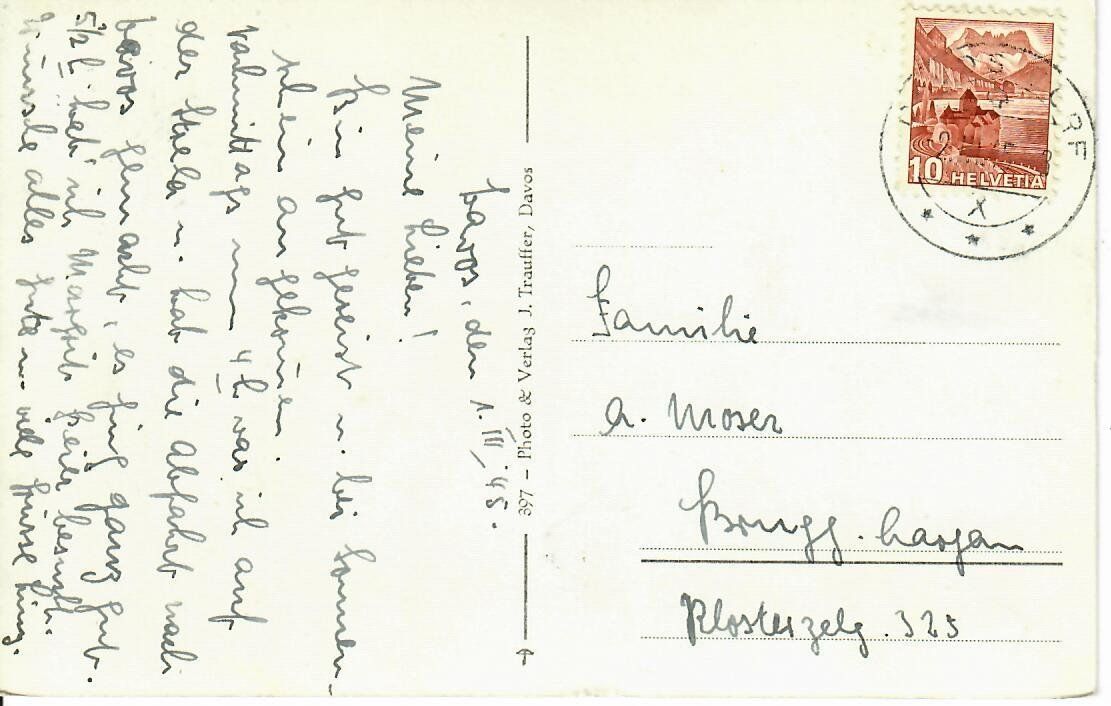 Davos, den 1. III. 45.
Meine Lieben!
Bin gut gereist u. bei Sonnen-
schein angekommen.
Nachmittags um 4 h war ich auf
der Strela u. hab die Abfahrt nach
Davos gemacht, es ging ganz gut.
5½ h hab' ich Margrit Beier besucht.
Wünsche alles Gute u. viele Grüsse
397 – Photo & Verlag J. Trauffer, Davos
10 HELVETIA
DORF
Familie
A. Moser
Brugg. Aargau
Klosterzelg. 323